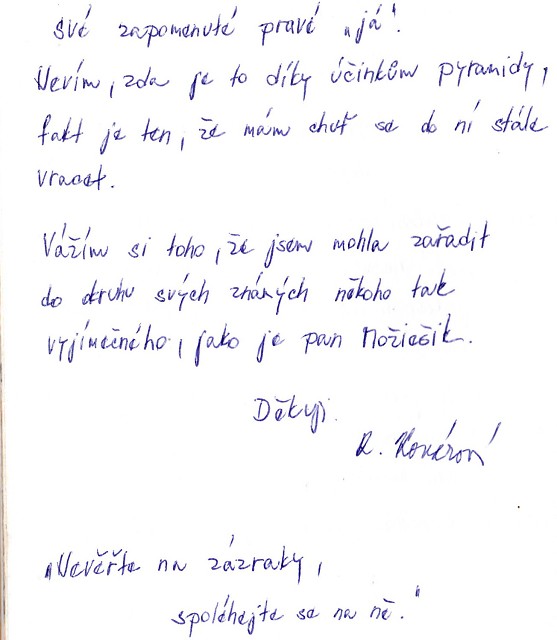 své zapomenuté pravé „já".
Nevím, zda je to díky účinkům pyramidy,
fakt je ten, že mám chuť se do ní stále
vracet.
Vážím si toho, že jsem mohla zařadit
do okruhu svých známých někoho tak
vyjímečného, jako je pan
Děkuji.
R.
„Nevěřte na zázraky,
spoléhejte se na ně."